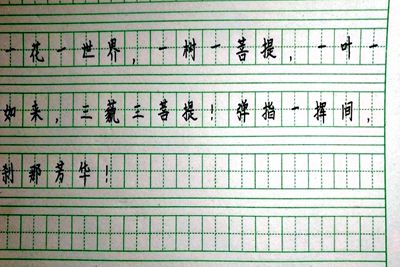 一花一世界,一树一菩提,一叶一
如来,三藐三菩提!弹指一挥间,
刹那芳华!